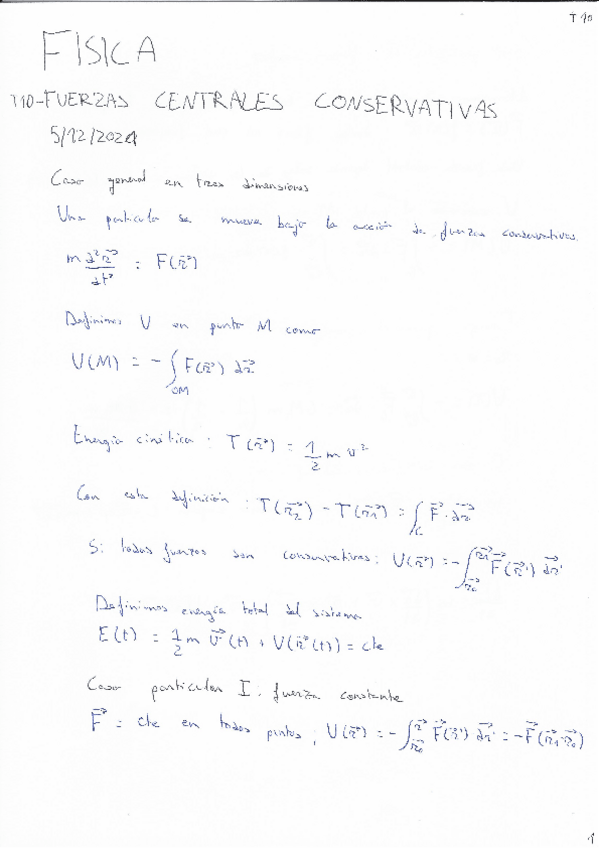 T 10
FISICA
T10-FUERZAS CENTRALES CONSERVATIVAS
5/12/2024
Caso general en tres dimensiones
Una particula se mueve bajo la acción de fuerzas conservativas.
m d²r⃗/dt² = F(r⃗)
Definimos V en punto M como
V(M) = - ∫_OM F(r⃗) dr⃗
Energía cinética : T(r⃗) = 1/2 m v²
Con esta definición : T(r⃗₂) - T(r⃗₁) = ∫_C F⃗ · dr⃗
Si todas fuerzas son conservativas : V(r⃗) = - ∫ F⃗(r⃗') dr⃗'
Definimos energía total del sistema
E(t) = 1/2 m v⃗²(t) + V(r⃗(t)) = cte
Caso particular I : fuerza constante
F⃗ = cte en todos puntos ; V(r⃗) = - ∫_r⃗₀^r⃗ F⃗(r⃗') dr⃗' = - F⃗(r⃗₁-r⃗₀)
1